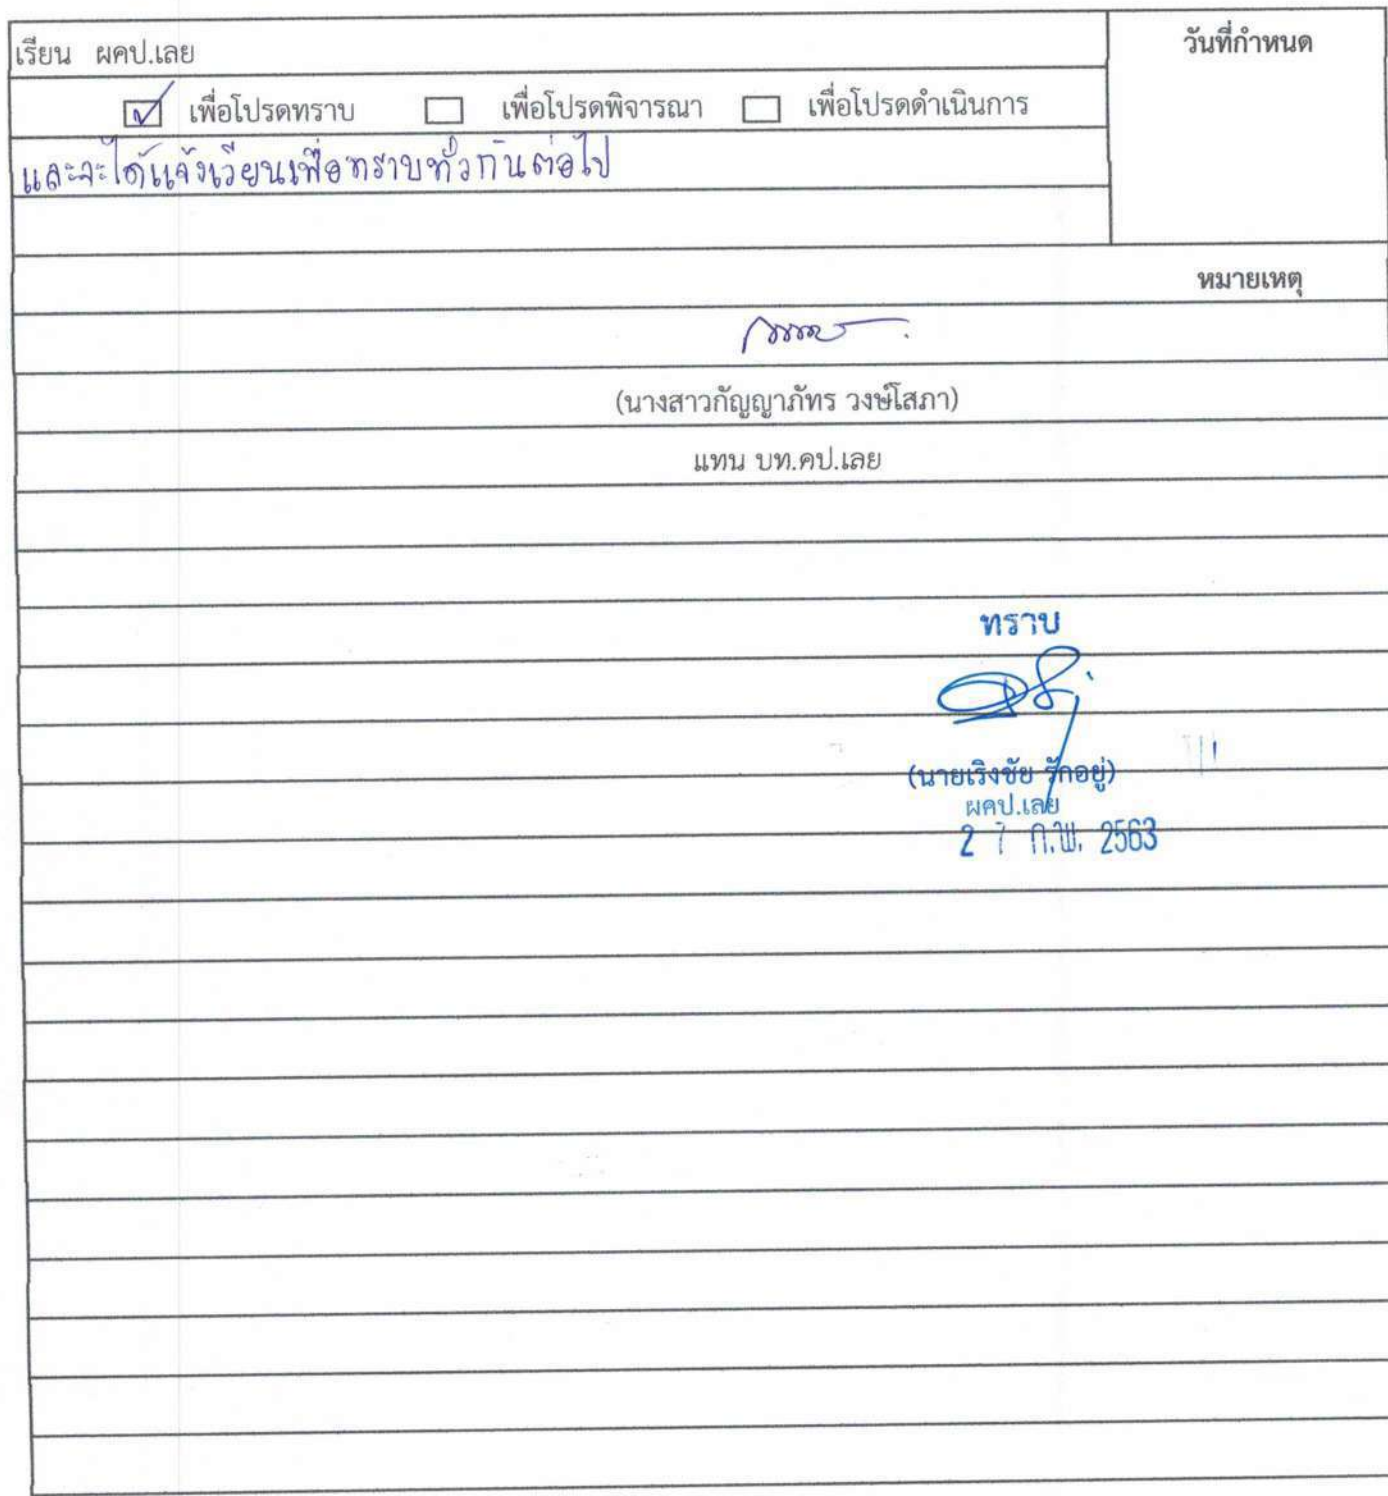 เรียน ผคป.เลย
วันที่กำหนด
เพื่อโปรดทราบ เพื่อโปรดพิจารณา เพื่อโปรดดำเนินการ
และจะได้แจ้งเวียนเพื่อทราบทั่วกันต่อไป
หมายเหตุ
(นางสาวกัญญาภัทร วงษ์โสภา)
แทน บท.คป.เลย
ทราบ
(นายเริงชัย รักอยู่)
ผคป.เลย
27 ก.พ. 2563